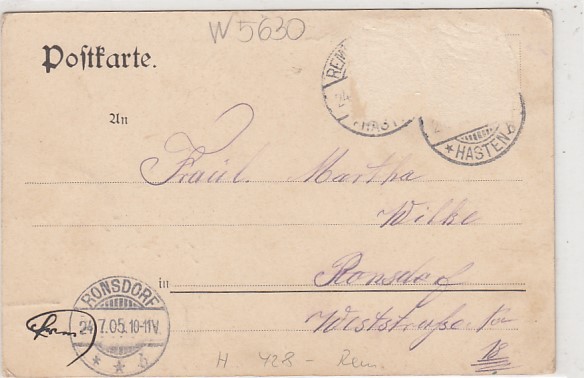 W 5630
Postkarte.
REM
HAST
HASTEN b
An
Fräul. Martha
Wilke
in Ronsdorf
Weststraße
18
RONSDORF
24 7.05.10-11V.
* * b
H 428 - Rem.